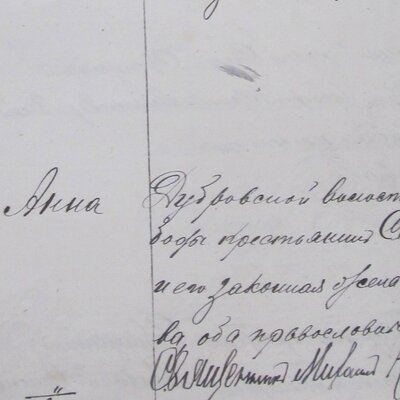 Анна
Дубровской волост
боды крестьянин С
и его законная жена
ва, оба православн
Священник Михаил